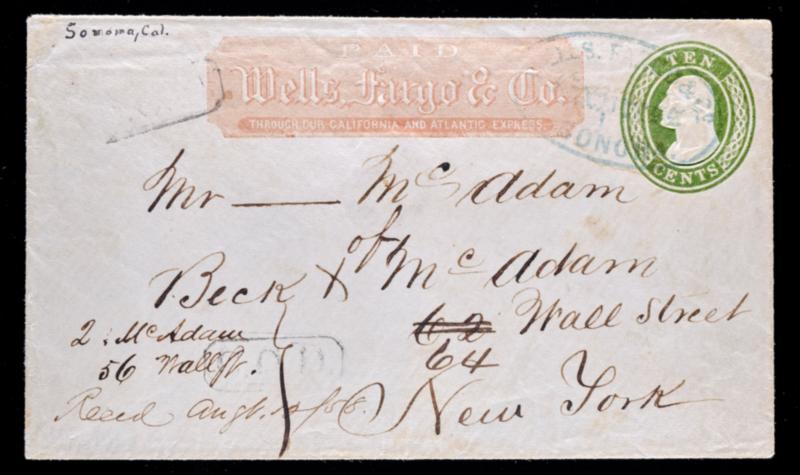 Sonoma, Cal.
PAID
Wells, Fargo & Co.
THROUGH OUR CALIFORNIA AND ATLANTIC EXPRESS.
TEN
CENTS
Mr — McAdam
of
Beck & McAdam
62 Wall Street
64
New York
2. McAdam
56 Wall St.
Recd Augt.